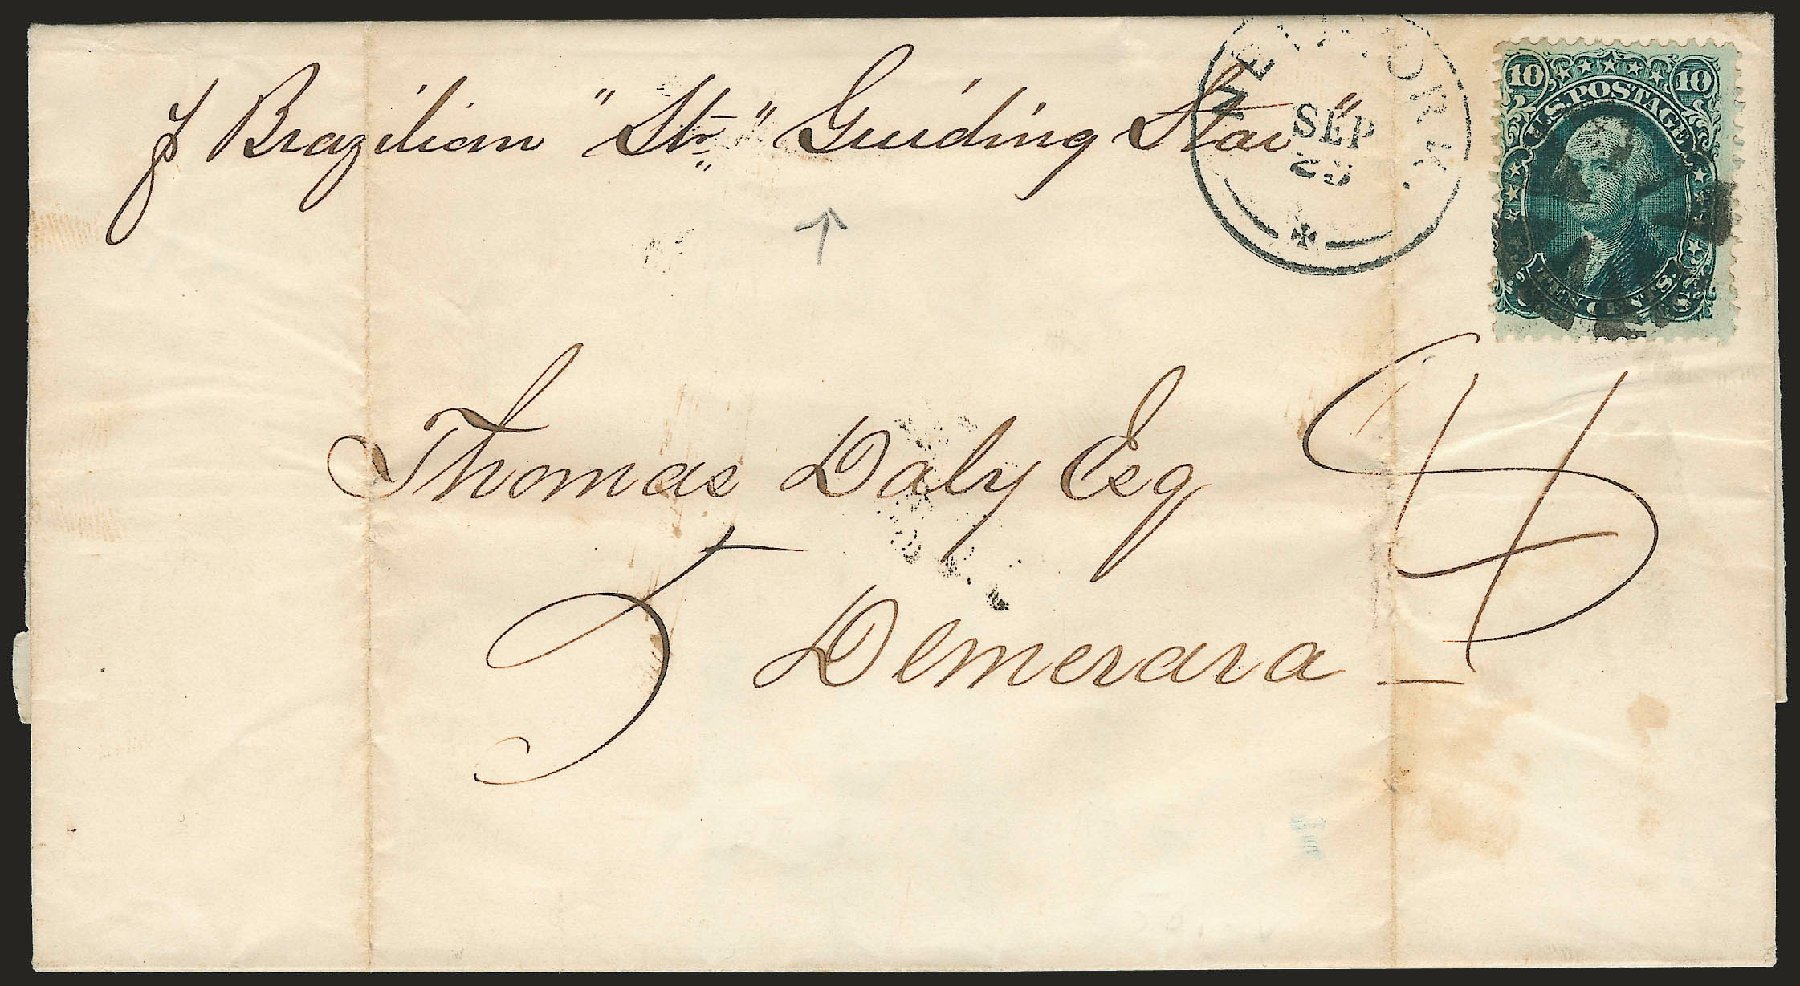 p Brazilian "Str" Guiding Star"
NEW YORK.
SEP
25
10 10
U.S. POSTAGE
TEN CENTS.
Thomas Daly Esq
4
Demerara